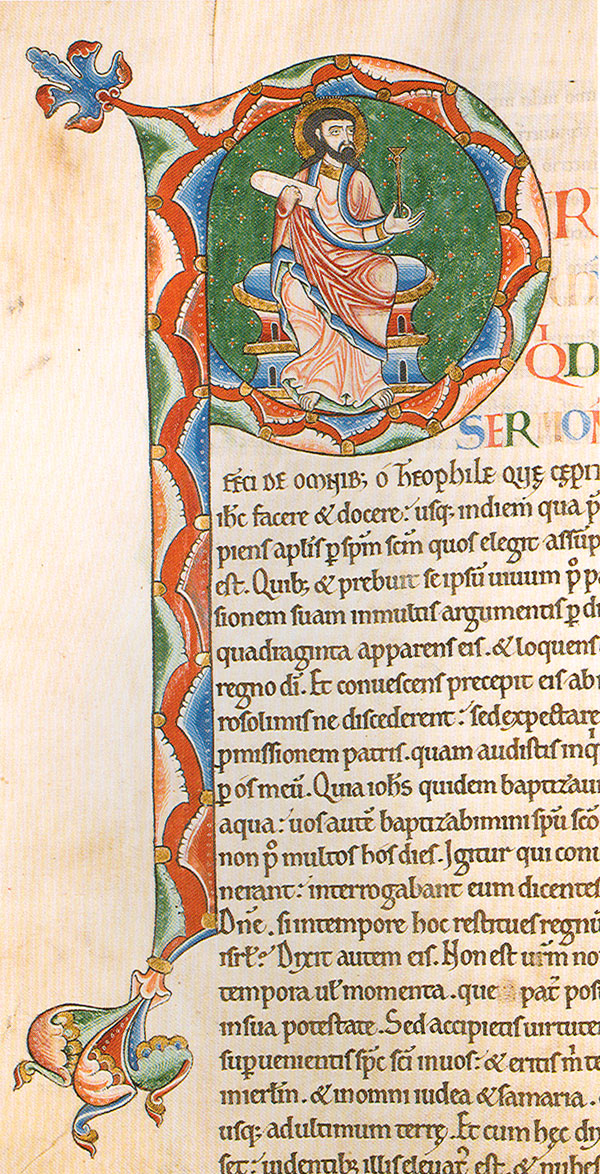 P
R
QD
SERMON
FECI DE OMNIB; O THEOPHILE QUĘ CEPIT
ihc facere & docere: usq; indiem qua p̄
piens aplis p spm scm quos elegit assūp
est. Quib; & prebuit se ipsū uiuum p̄ pa
sionem suam inmultis argumentis p di
quadraginta apparens eis. & loquens
regno di. Et conuescens precepit eis ab i
rosolimis ne discederent: sed expectare
pmissionem patris. quam audistis inq
p os meū. Quia iohs quidem baptizaui
aqua: uos autē baptizabimini spū sco
non p̄ multos hos dies. Igitur qui conu
nerant: interrogabant eum dicentes
Dn̄e. si intempore hoc restitues regnū
isrl? Dixit autem eis. Non est urm no
tempora ul momenta. que pat pos
insua potestate. Sed accipietis uirtutē
supuenientis spc sci inuos: & eritis m te
inierlm. & inomni iudea & samaria.
usq; adultimum terrę. Et cum hęc dix
set: uidentib; illis eleuat est. & nubes